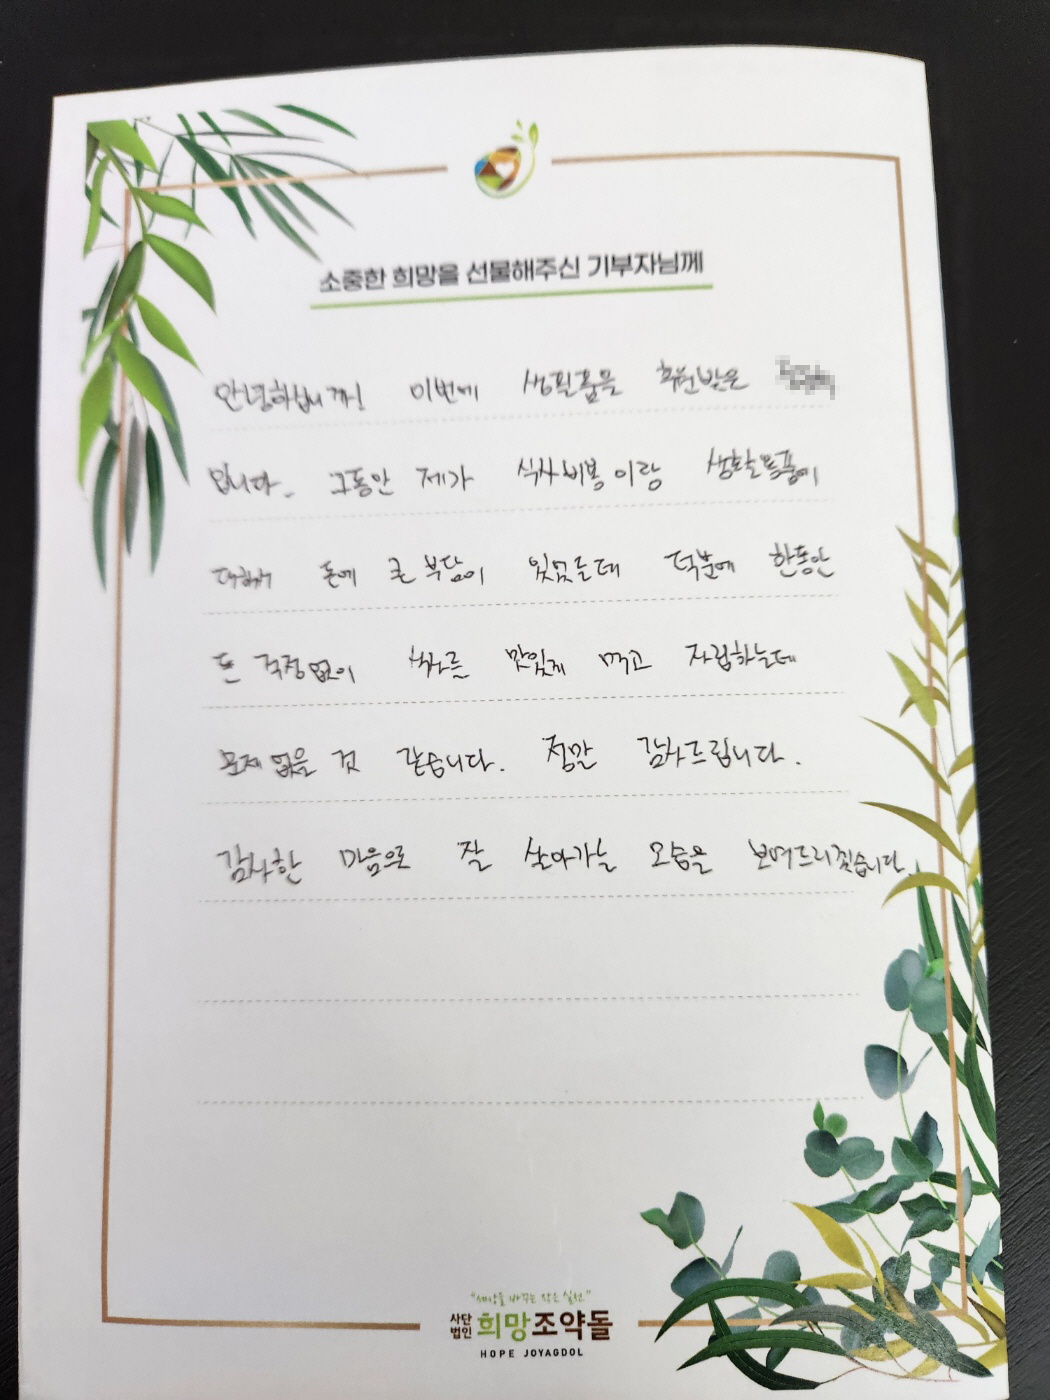 소중한 희망을 선물해주신 기부자님께
안녕하십니까! 이번에 생필품을 후원받은
입니다. 그동안 제가 식사비용이랑 생활용품에
대해서 돈에 큰 부담이 있었는데 덕분에 한동안
돈 걱정없이 식사를 맛있게 먹고 자립하는데
문제 없을 것 같습니다. 정말 감사드립니다.
감사한 마음으로 잘 살아가는 모습을 보여드리겠습니다.
"세상을 바꾸는 작은 실천"
사단법인 희망조약돌
HOPE JOYAGDOL